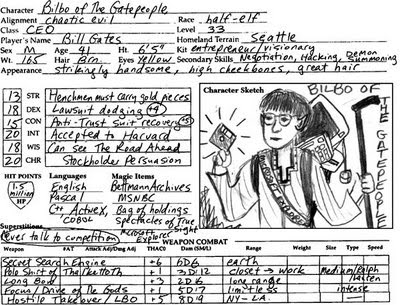 Character Bilbo of The Gatepeople
Alignment chaotic evil Race half-elf
Class CEO Level 33
Player's Name Bill Gates Homeland Terrain Seattle
Sex M Age 41 Ht. 6'5" Kit entrepreneur/visionary
Wt. 165 Hair Brn. Eyes Yellow Secondary Skills Negotiation, Hacking, Demon Summoning
Appearance strikingly handsome, high cheekbones, great hair
13 STR Henchmen must carry gold pieces
18 DEX Lawsuit dodging +9
15 CON Anti-Trust suit recovery
20 INT Accepted to Harvard
18 WIS Can See The Road Ahead
20 CHR Stockholder Persuasion
Character Sketch
BILBO OF
THE GATEPEOPLE
HIT POINTS
1.5 million HP
Languages
English
Pascal
C++ ActiveX,
COBOL
Magic Items
Bettmann Archives
MSNBC
Bag of holdings
Spectacles of True Sight
Microsoft Explorer
Superstitions
never talk to competition
WEAPON COMBAT
Weapon FAT Attack/Dmg Adj THAC0 Dam (SM/L) Range Weight Size Type Speed
Secret Search Engine +6 6D6 earth
Polo Shirt of +1 3D12 closet → work Medium/Ralph Lauren
Long Bow +3 2D6 long range
Focus/Drive of The Gods +1 5D17 limitless intense
Hostile Takeover/LBO +5 8D19 NY-LA